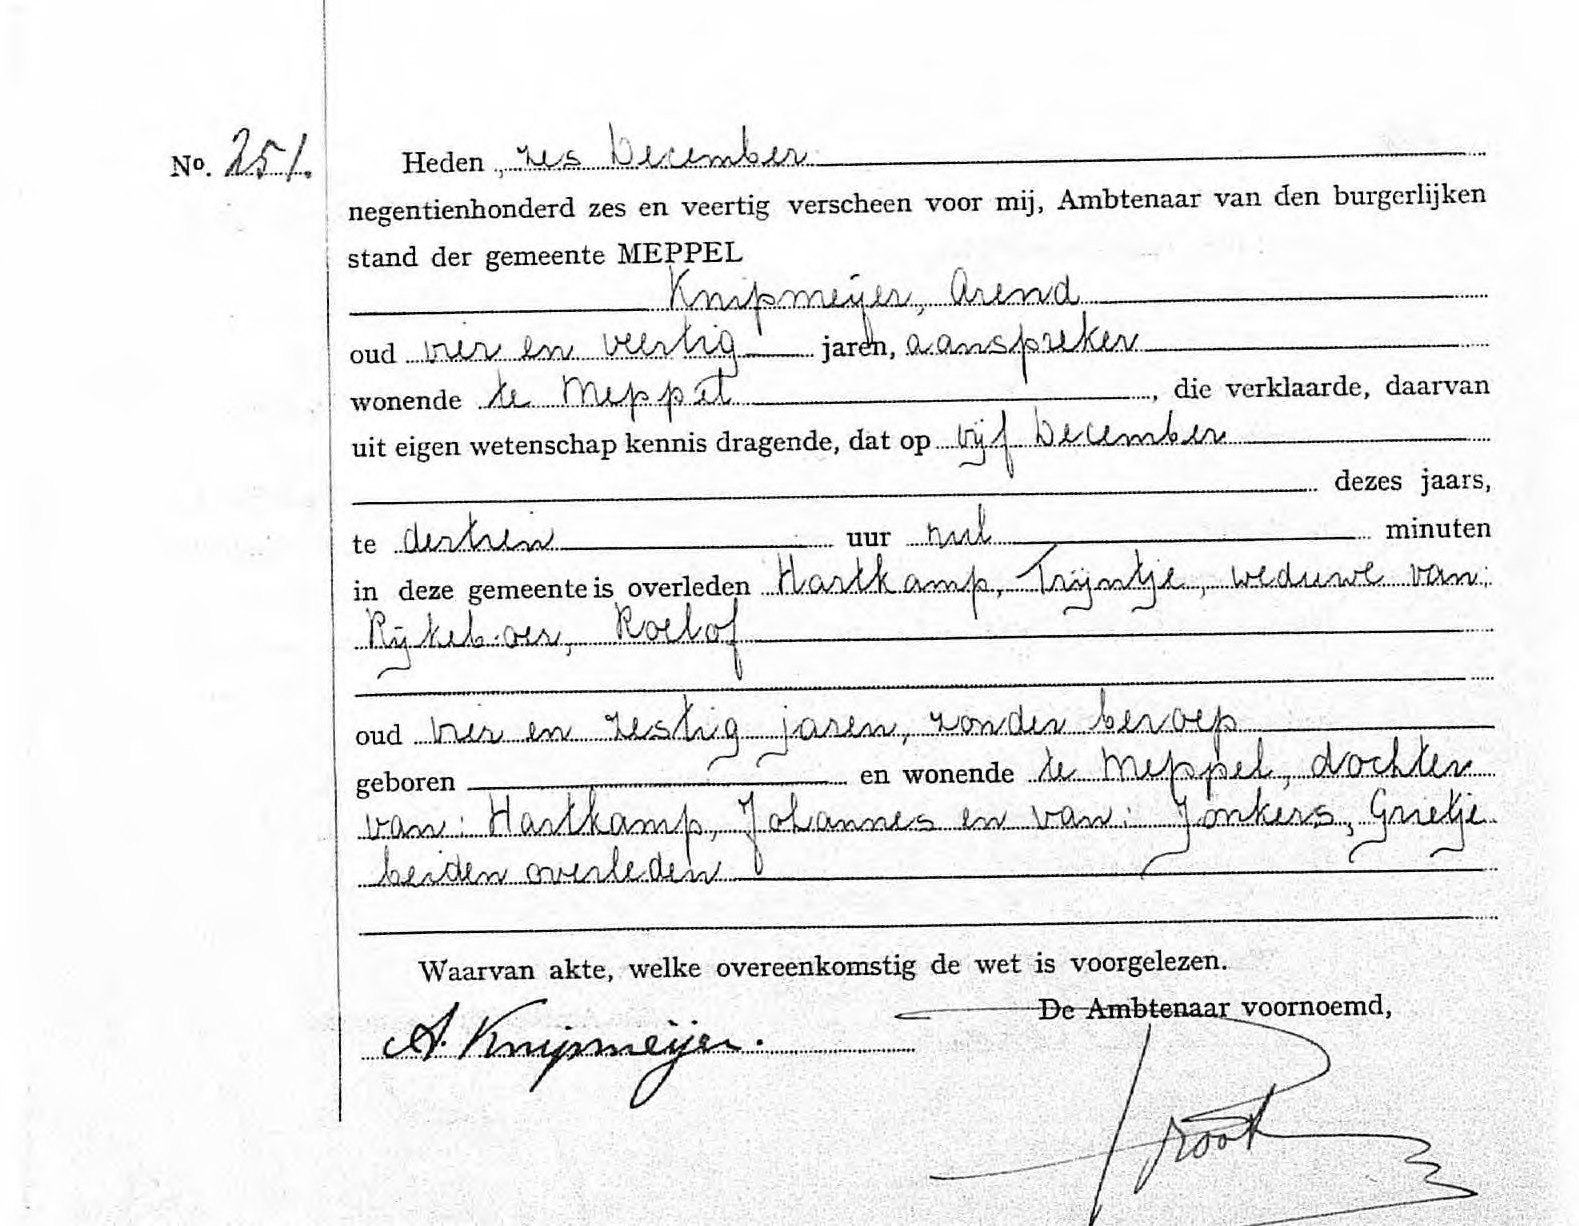 No. 251. Heden, zes December
negentienhonderd zes en veertig verscheen voor mij, Ambtenaar van den burgerlijken
stand der gemeente MEPPEL
Knipmeijer, Arend
oud vier en veertig jaren, aanspreker
wonende te Meppel, die verklaarde, daarvan
uit eigen wetenschap kennis dragende, dat op vijf December
dezes jaars,
te dertien uur nul minuten
in deze gemeente is overleden Hartkamp, Trijntje, weduwe van:
Rijkeboer, Roelof
oud vier en zestig jaren, zonder beroep
geboren en wonende te Meppel, dochter
van: Hartkamp, Johannes en van: Jonkers, Grietje
beiden overleden
Waarvan akte, welke overeenkomstig de wet is voorgelezen.
De Ambtenaar voornoemd,
A. Knijpmeijer.